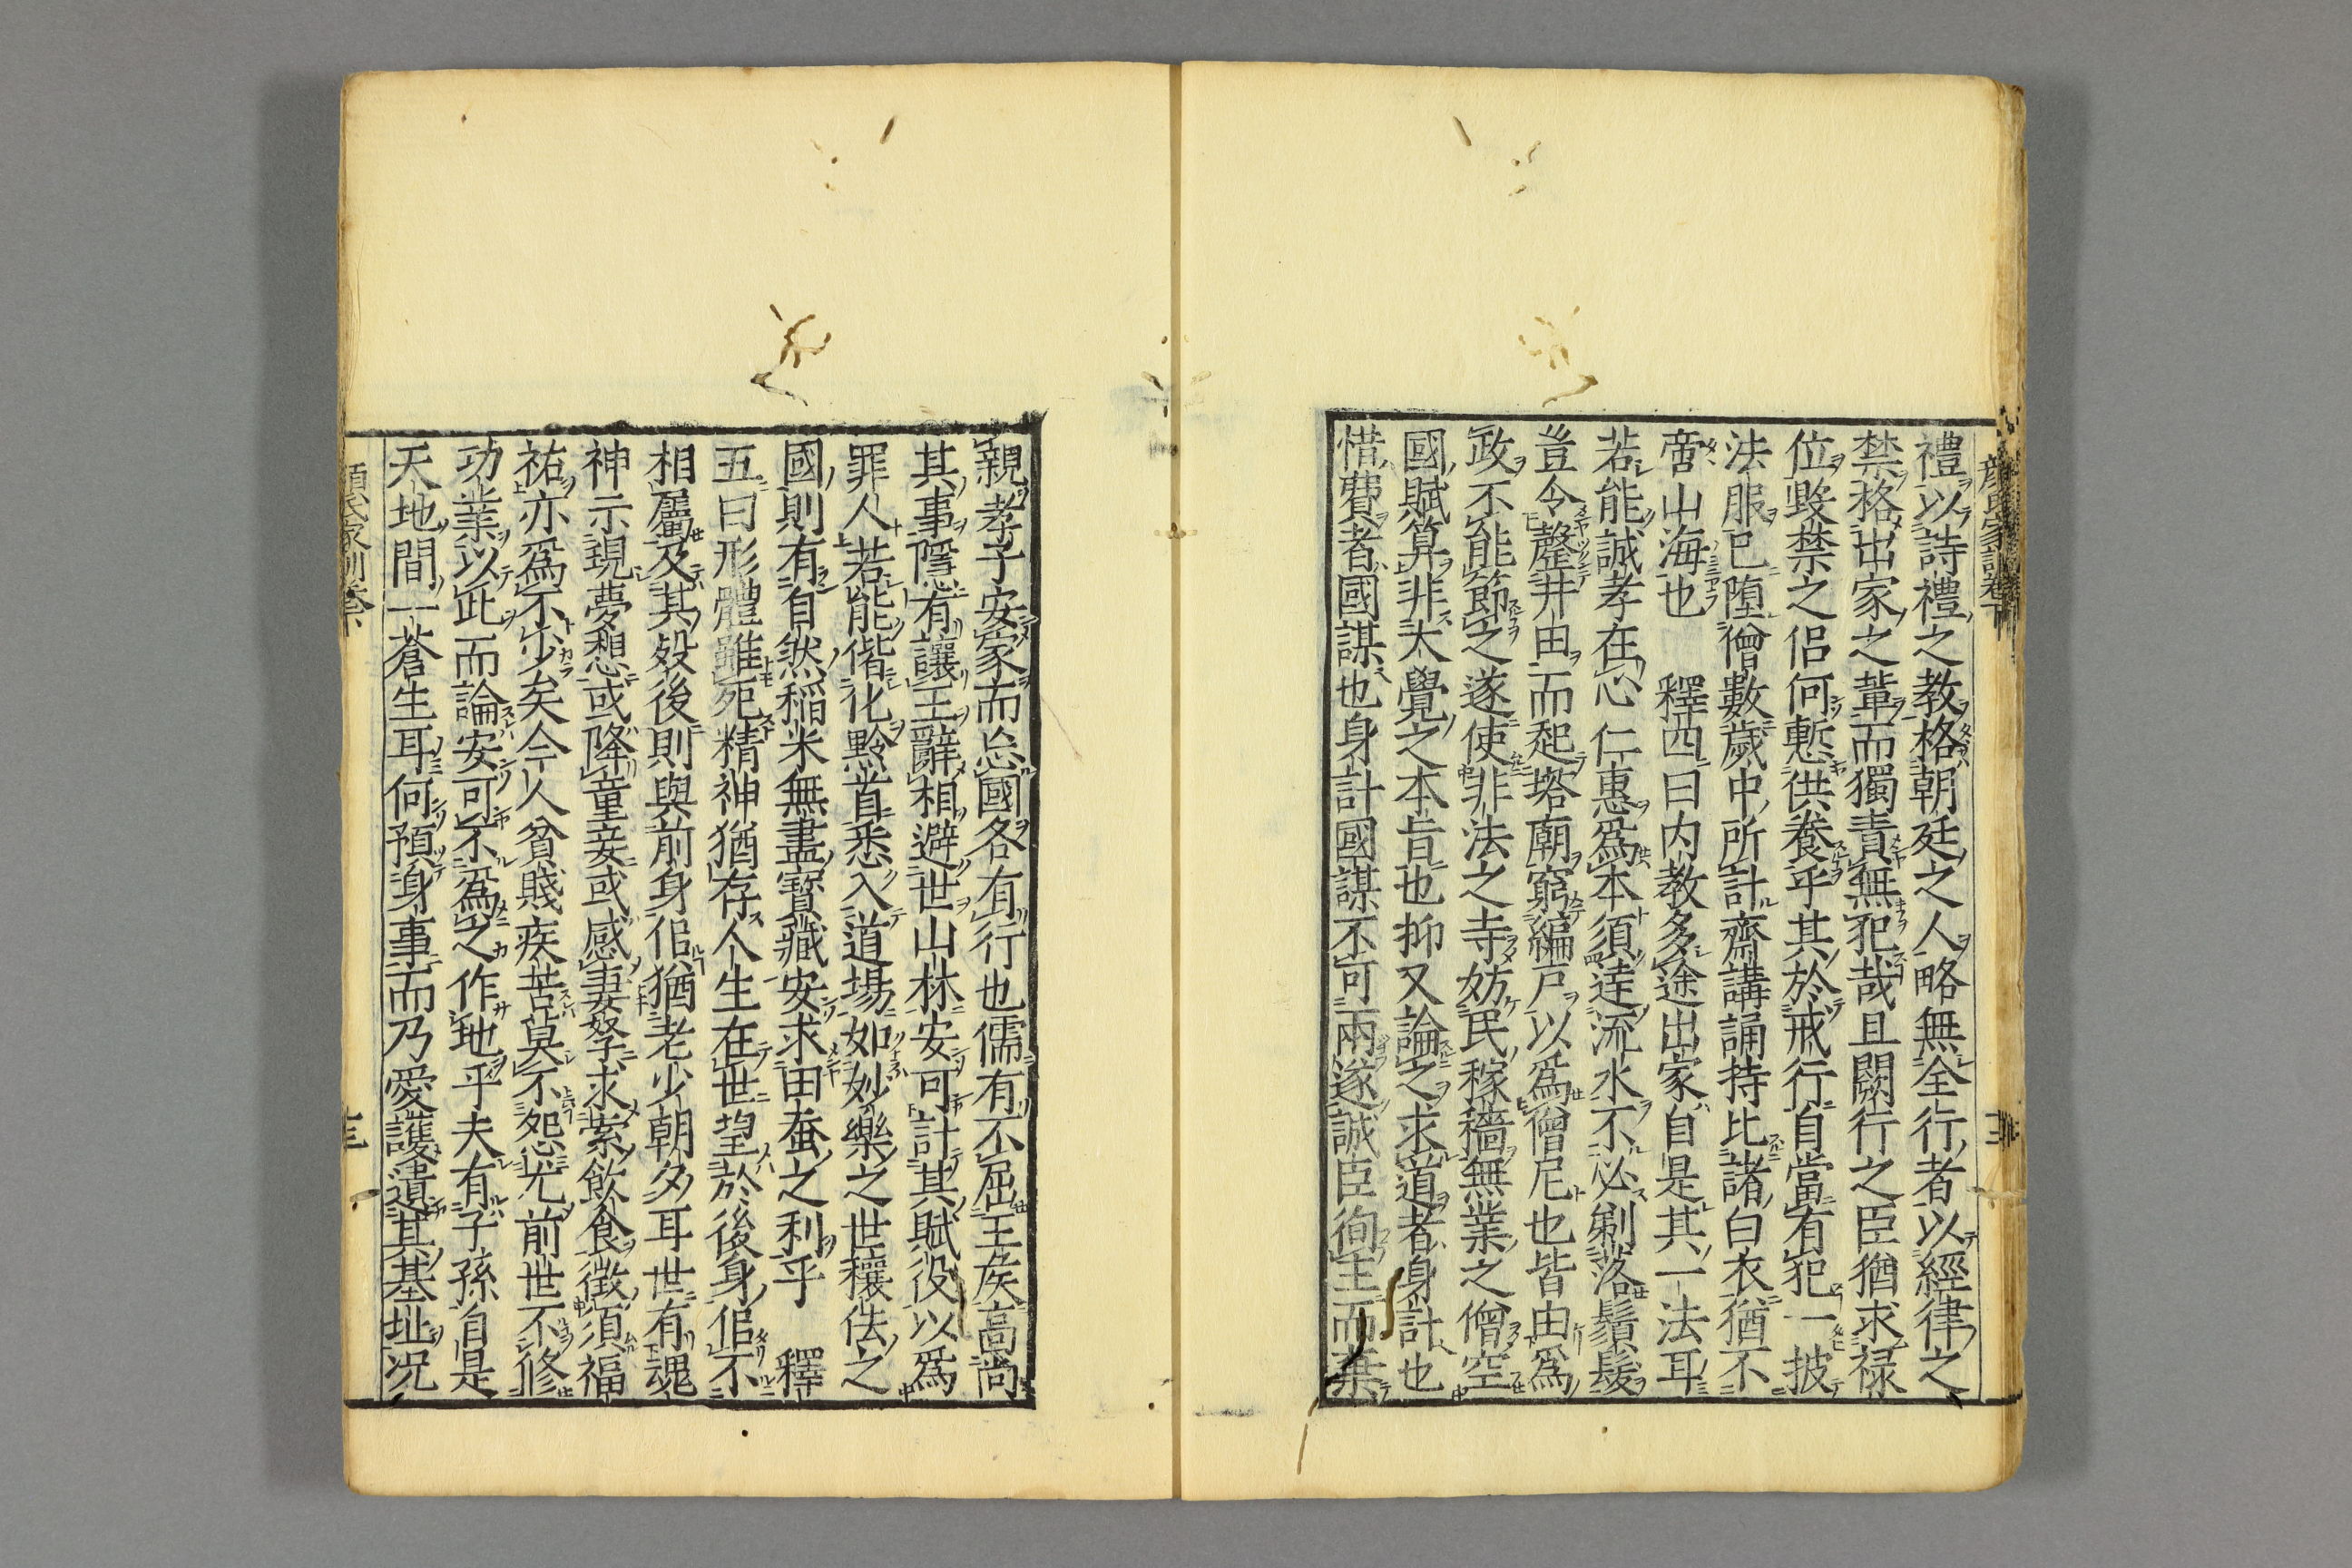 顔氏家訓卷下
禮以詩禮之教格朝廷之人略無全行者以經律之
禁格出家之輩而獨責無犯哉且闕行之臣猶求禄
位毀禁之侣何慙供養乎其於戒行自當有犯一披
法服已堕僧數歲中所計齋講誦持比諸白衣猶不
啻山海也　釋四曰内教多途出家自是其一法耳
若能誠孝在心仁惠爲本須達流水不必剃落鬚髮
豈令罄井田而起塔廟窮編戸以爲僧尼也皆由爲
政不能節之遂使非法之寺妨民稼穡無業之僧空
國賦算非大覺之本旨也抑又論之求道者身計也
惜費者國謀也身計國謀不可兩遂誠臣徇主而棄
親孝子安家而忘國各有行也儒有不屈王矦高尚
其事隱有讓王辭相避世山林安可計其賦役以爲
罪人若能偕化黔首悉入道場如妙樂之世穰佉之
國則有自然稲米無盡寳藏安求田蚕之利乎　釋
五曰形體雖死精神猶存人生在世望於後身佀不
相屬及其殁後則與前身佀猶老少朝夕耳世有魂
神示現夢想或降童妾或感妻孥求索飲食徴須福
祐亦爲不少矣今人貧賤疾苦莫不怨尤前世不修
功業以此而論安可不爲之作地乎夫有子孫自是
天地間一蒼生耳何預身事而乃愛護遺其基址况
顔氏家訓卷下